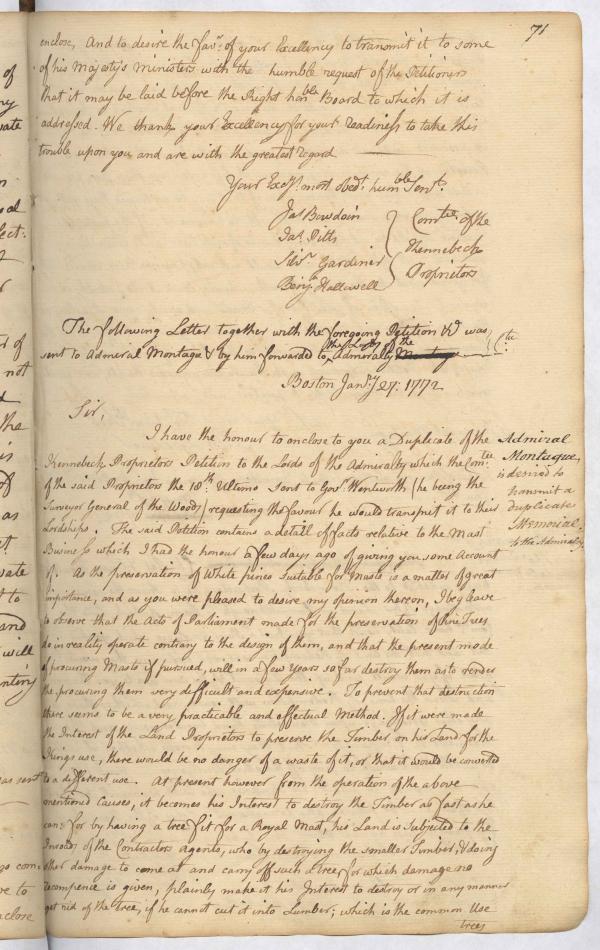 71
enclose, And to desire the favr. of your Excellency to transmit it to some
of his Majesty's Ministers with the humble request of the Petitioners
that it may be laid before the Right honble Board to which it is
addressed. We thank your Excellency for your readiness to take this
trouble upon you and are with the greatest regard
Your Excy's most obedt. humble Servts.
Jas Bowdoin
Jas. Pitts
Silvr. Gardiner
Benj. Hallowell
Comtee of the
Kennebeck
Proprietors
The following Letter together with the foregoing Petition &c was
sent to Admiral Montague & by him forwarded to the Lords of the Admiralty
Boston Jany. 27: 1772
Sir,
I have the honour to enclose to you a Duplicate of the
Kennebeck Proprietors Petition to the Lords of the Admiralty which the Comtee
of the said Proprietors the 10th Ultimo sent to Govr. Wentworth (he being the
Surveyor General of the Woods) requesting the favour he would transmit it to their
Lordships. The said Petition contains a detail of facts relative to the Mast
Business which I had the honour a few days ago of giving you some Account
of. As the preservation of White pines Suitable for Masts is a matter of great
importance, and as you were pleased to desire my opinion thereon, I beg leave
to observe that the Acts of Parliament made for the preservation of Pine Trees
do in reality operate contrary to the design of them, and that the present mode
of procuring Masts if pursued, will in a few Years so far destroy them as to render
the procuring them very difficult and expensive. To prevent that destruction
there seems to be a very practicable and effectual Method. If it were made
the Interest of the Land Proprietors to preserve the Timber on his Land for the
Kings use, there would be no danger of a waste of it, or that it would be converted
to a different use. At present however from the operation of the above
mentioned Causes, it becomes his Interest to destroy the Timber as fast as he
can: for by having a tree fit for a Royal Mast, his Land is Subjected to the
Inroads of the Contractors Agents, who by destroying the smaller Timber, & doing
other damage to come at and carry off such a tree, for which damage no
recompence is given, plainly make it his Interest to destroy or in any manner
get rid of the tree, if he cannot cut it into Lumber; which is the common Use
trees
Admiral
Montague
is desired to
transmit a
duplicate
Memorial
to the Admiralty